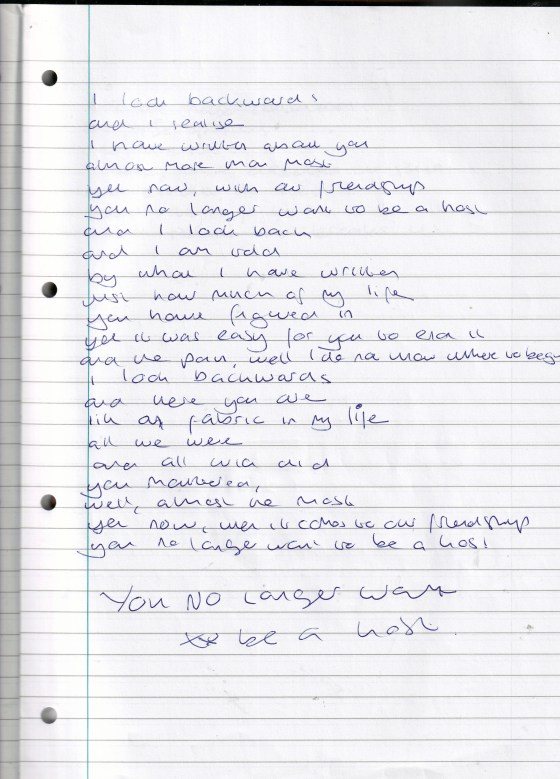 I look backwards
and I realise
I have written about you
almost more than most
yet now, with our friendship
you no longer want to be a host
and I look back
and I am told
by what I have written
just how much of my life
you have figured in
yet it was easy for you to end it
and the pain, well I do no know where to begin
I look backwards
and here you are
in fabric in my life
all we were
and all we did
you mattered,
well, almost the most
yet now, when it comes to our friendship
you no longer want to be a host
You No Longer want
to be a host.